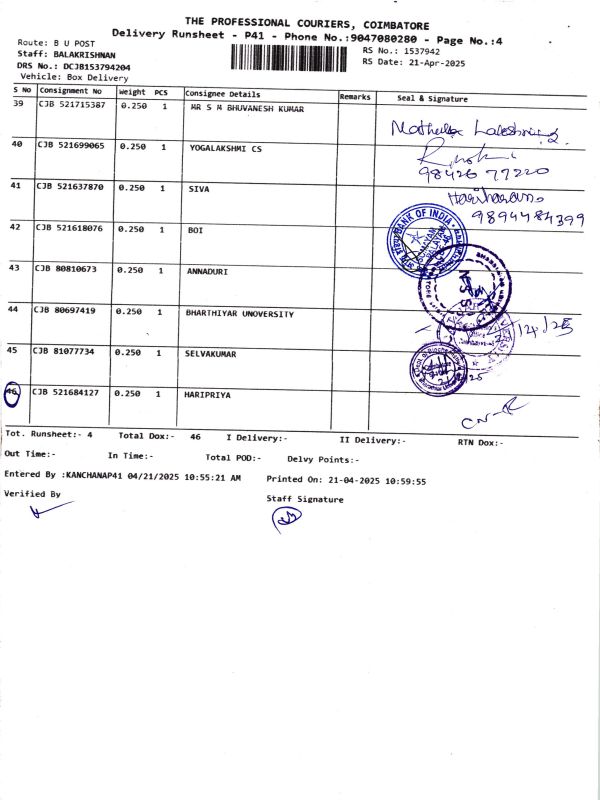 THE PROFESSIONAL COURIERS, COIMBATORE
Delivery Runsheet - P41 - Phone No.:9047080280 - Page No.:4
Route: B U POST
RS No.: 1537942
Staff: BALAKRISHNAN
RS Date: 21-Apr-2025
DRS No.: DCJB153794204
Vehicle: Box Delivery
S No Consignment No Weight PCS Consignee Details Remarks Seal & Signature
39 CJB 521715387 0.250 1 MR S M BHUVANESH KUMAR
40 CJB 521699065 0.250 1 YOGALAKSHMI CS
98426 77220
41 CJB 521637870 0.250 1 SIVA
Hariharan
9894484399
42 CJB 521618076 0.250 1 BOI
BANK OF INDIA
43 CJB 80810673 0.250 1 ANNADURI
44 CJB 80697419 0.250 1 BHARTHIYAR UNOVERSITY
45 CJB 81077734 0.250 1 SELVAKUMAR
46 CJB 521684127 0.250 1 HARIPRIYA
Tot. Runsheet:- 4 Total Dox:- 46 I Delivery:- II Delivery:- RTN Dox:-
Out Time:- In Time:- Total POD:- Delvy Points:-
Entered By :KANCHANAP41 04/21/2025 10:55:21 AM Printed On: 21-04-2025 10:59:55
Verified By
Staff Signature